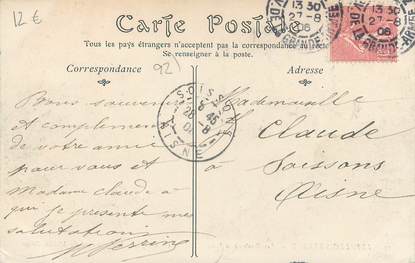 12€
Carte Postale
Tous les pays étrangers n'acceptent pas la correspondance au recto
Se renseigner à la poste.
Correspondance
Adresse
92
13 30
27-8
06
GRANDE-ARMÉE
13 30
27-8
06
GRANDE-ARMÉE
SOISSONS
AISNE
Bons souvenirs
et complements
de votre amie
pour vous et
Madame Claude a
qui je presente mes
salutations
Mademoiselle
Claude
à Soissons
Aisne